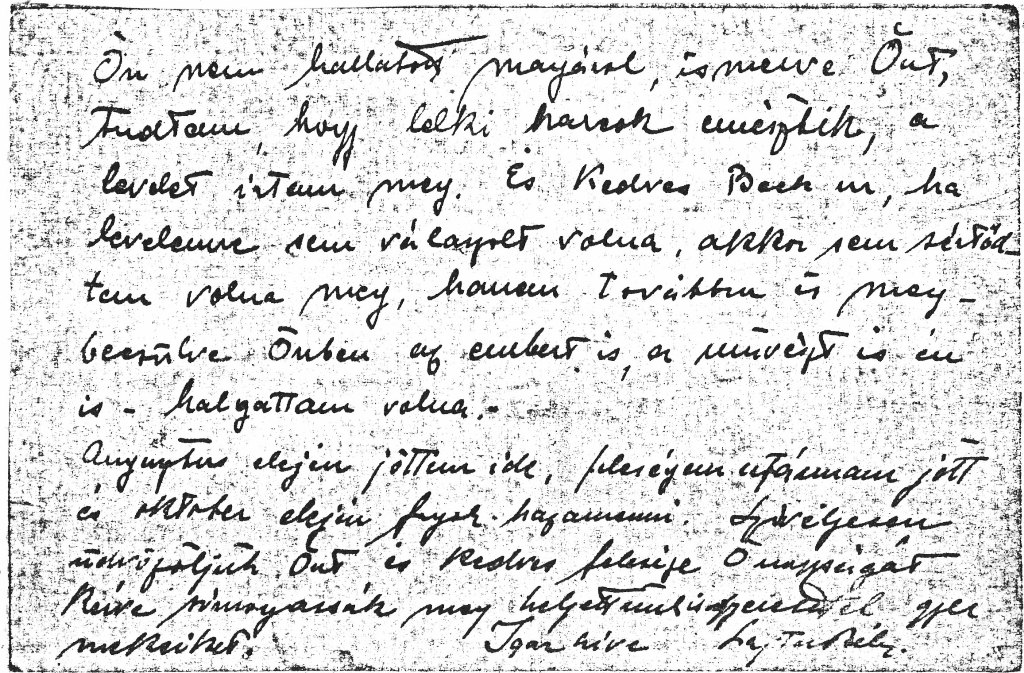 Ön nem hallatott magáról, ismerve Önt,
tudtam, hogy lelki harcok emésztik, a
levelet irtam meg. És Kedves Beck úr, ha
levelemre sem válaszolt volna, akkor sem sértőd-
tem volna meg, hanem továbbra is meg-
becsülve Önben az embert is, a művészt is én
is - halgattam volna.-
Augusztus elején jöttem ide, feleségem utánnam jött
és oktober elején fogok hazamenni. Szivélyesen
üdvözöljük Önt és Kedves felesége Önagyságát
Kérve simogassák meg helyettünk is gyer-
mekeiket.
Igaz hive